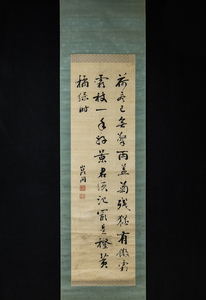 荷盡已無擎雨蓋菊殘猶有傲
霜枝一年好景君須記最是橙黃
橘綠時